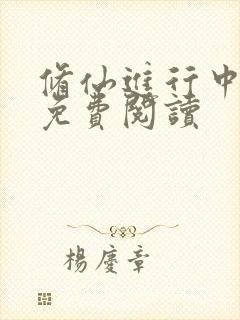 脩仙進行中
免費閱讀
楊慶章